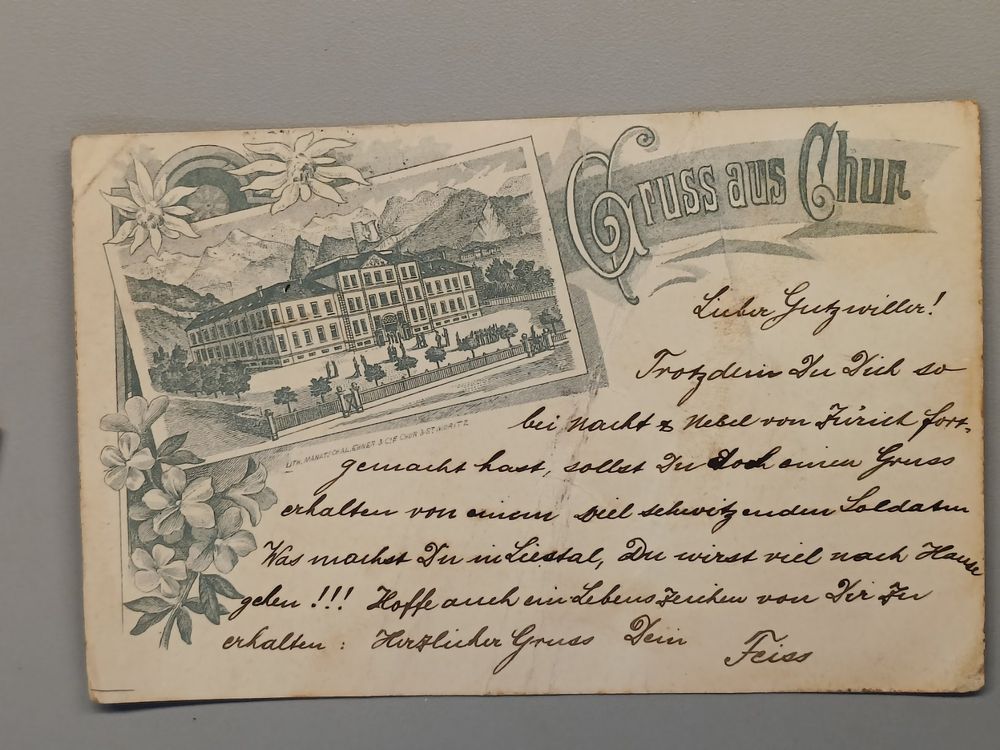 Gruss aus Chur.
LITH. MANATSCHAL, EBNER & CIE CHUR & ST. MORITZ
Lieber Gutzwiller!
Trotzdem Du Dich so
bei Nacht & Nebel von Zürich fort-
gemacht hast, sollst Du doch einen Gruss
erhalten von einem viel schwitzenden Soldaten
Was machst Du in Liestal, Du wirst viel nach Hause
gehen !!! Hoffe auch ein Lebenszeichen von Dir zu
erhalten : Herzlicher Gruss Dein
Feiss